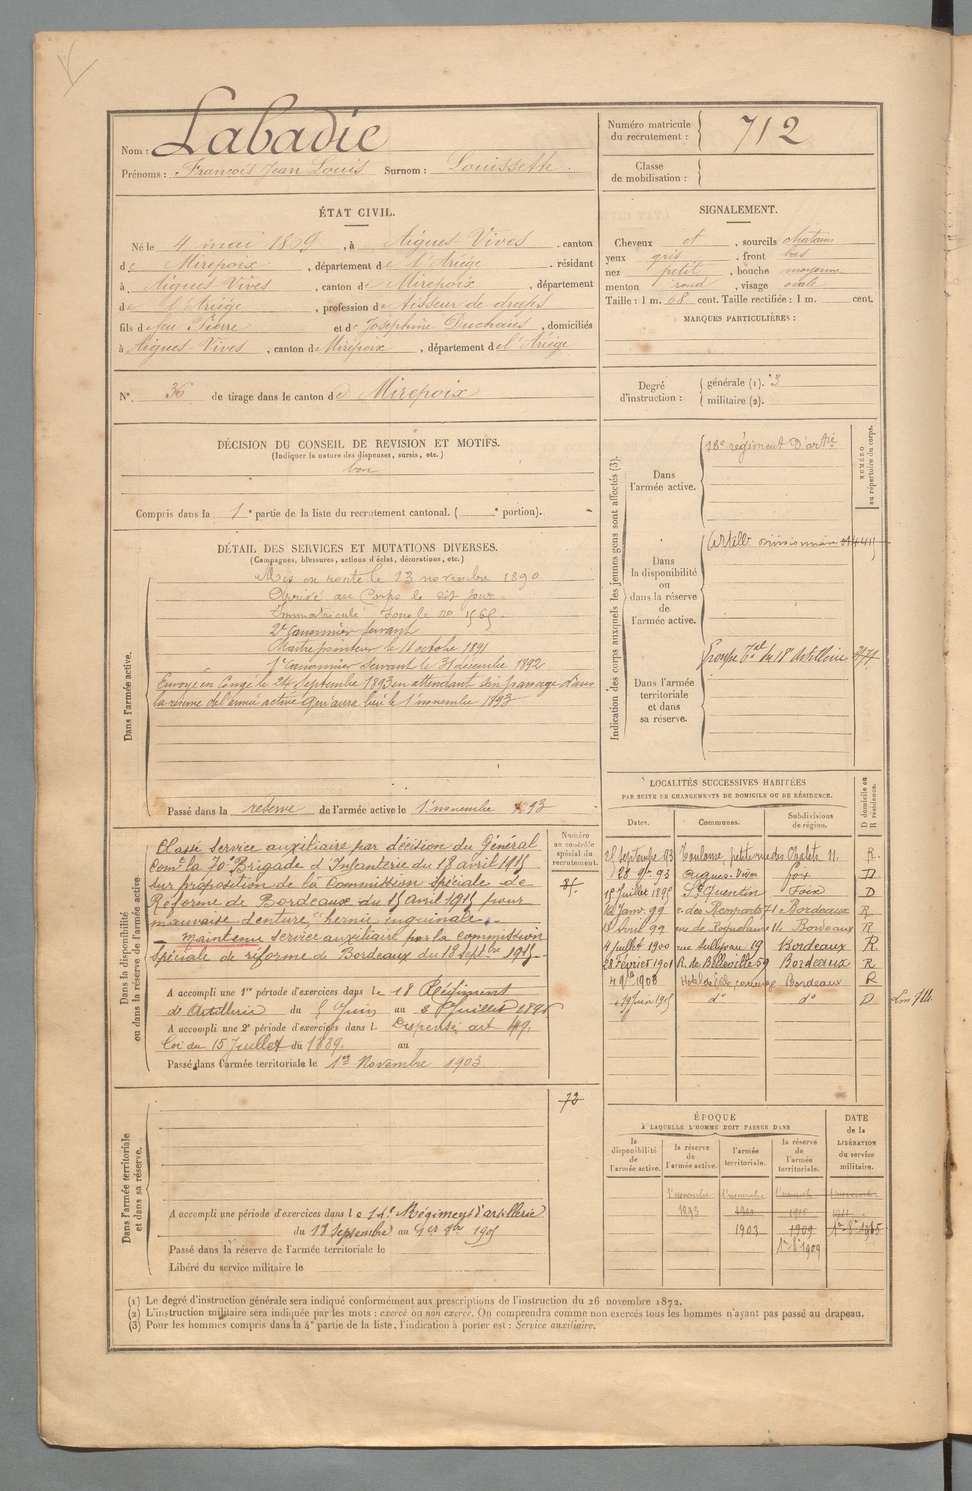 Nom : Labadie
Prénoms : François Jean Louis Surnom : Louissette
Numéro matricule du recrutement : 712
Classe de mobilisation :
ÉTAT CIVIL.
Né le 4 mai 1869, à Aigues Vives, canton
de Mirepoix, département de l'Ariège, résidant
à Aigues-Vives, canton de Mirepoix, département
de l'Ariège, profession de tisseur de draps
fils de feu Pierre et de Joséphine Duchans, domiciliés
à Aigues-Vives, canton de Mirepoix, département de l'Ariège
SIGNALEMENT.
Cheveux et, sourcils chatains
yeux gris, front bas
nez petit, bouche moyenne
menton rond, visage ovale
Taille : 1 m. 68 cent. Taille rectifiée : 1 m. cent.
MARQUES PARTICULIÈRES :
N° 36 de tirage dans le canton de Mirepoix
Degré d'instruction : générale (1). 3
militaire (2).
DÉCISION DU CONSEIL DE REVISION ET MOTIFS.
(Indiquer la nature des dispenses, sursis, etc.)
bon
Compris dans la 1e partie de la liste du recrutement cantonal. ( e portion).
DÉTAIL DES SERVICES ET MUTATIONS DIVERSES.
(Campagnes, blessures, actions d'éclat, décorations, etc.)
Dans l'armée active.
Mis en route le 13 novembre 1890
Arrivé au Corps le dit jour.
Immatriculé sous le no 1565.
2e Canonnier servant
Maitre pointeur le 11 octobre 1891
1er Canonnier servant le 31 décembre 1892
Envoyé en Congé le 24 Septembre 1893 en attendant son passage dans
la réserve de l'armée active qui aura lieu le 1 novembre 1893
Passé dans la réserve de l'armée active le 1er novembre 1893
Indication des corps auxquels les jeunes gens sont affectés (3).
NUMÉRO au répertoire du corps.
Dans l'armée active.
18e régiment d'artrie
Dans la disponibilité ou dans la réserve de l'armée active.
Dans l'armée territoriale et dans sa réserve.
Groupe Tal du 18e Artillerie
LOCALITÉS SUCCESSIVES HABITÉES
PAR SUITE DE CHANGEMENTS DE DOMICILE OU DE RÉSIDENCE.
Dates. Communes. Subdivisions de région. D domicile ou R résidence.
25 septembre 93 Toulouse, petite rue des 11. R.
28 9bre 93 Aigues-Vives foix D
15 Juillet 1895 St Quentin Foix D
12 Janv. 99 r. des Remparts 71 Bordeaux R
Avril 99 rue de 14 Bordeaux R
4 juillet 1900 rue Sullivan 19 Bordeaux R
28 Février 1901 R. de Belleville 59 Bordeaux R
4 9bre 1903 Hotel de Ville Bordeaux R
19 Juin 1905 do do D
Dans la disponibilité ou dans la réserve de l'armée active.
Numéro au contrôle spécial du recrutement.
Classé Service auxiliaire par décision du Général
Comt la 70e Brigade d'Infanterie du 18 avril 1915
sur proposition de la Commission Spéciale de
Réforme de Bordeaux du 15 Avril 1915 pour
mauvaise denture, hernie inguinale.
Maintenu service auxiliaire par la commission
spéciale de réforme de Bordeaux du 18 Septbre 1915.
A accompli une 1re période d'exercices dans le 18 Régiment
d'Artillerie du 5 Juin au 2 Juillet 189
A accompli une 2e période d'exercices dans l. Dispensé art 49.
loi du 15 Juillet du 1889. au
Passé dans l'armée territoriale le 1er Novembre 1903
Dans l'armée territoriale et dans sa réserve.
72
A accompli une période d'exercices dans le 14e Régiment d'artillerie
du 18 Septembre au 1er 8bre 1905
Passé dans la réserve de l'armée territoriale le
Libéré du service militaire le
ÉPOQUE
À LAQUELLE L'HOMME DOIT PASSER DANS
la disponibilité de l'armée active. la réserve de l'armée active. l'armée territoriale. la réserve de l'armée territoriale. DATE de la LIBÉRATION du service militaire.
1er novembre 1er novembre
1893 1900
1903 1909 1er 8e 1915
1er 8e 1909
(1) Le degré d'instruction générale sera indiqué conformément aux prescriptions de l'instruction du 26 novembre 1872.
(2) L'instruction militaire sera indiquée par les mots : exercé ou non exercé. On comprendra comme non exercés tous les hommes n'ayant pas passé au drapeau.
(3) Pour les hommes compris dans la 4e partie de la liste, l'indication à porter est : Service auxiliaire.